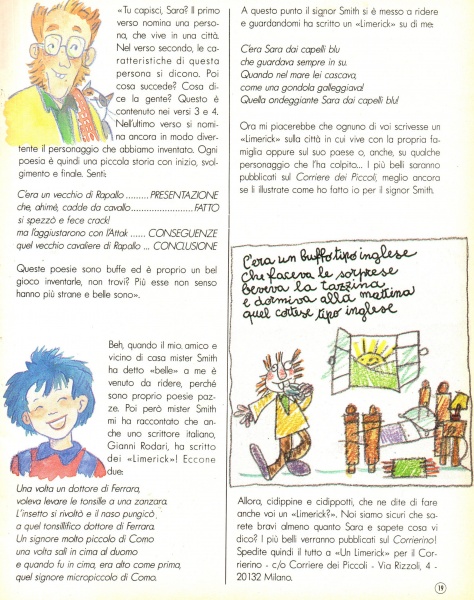 «Tu capisci, Sara? Il primo
verso nomina una perso-
na, che vive in una città.
Nel verso secondo, le ca-
ratteristiche di questa
persona si dicono. Poi
cosa succede? Cosa di-
ce la gente? Questo è
contenuto nei versi 3 e 4.
Nell'ultimo verso si nomi-
na ancora in modo diver-
tente il personaggio che abbiamo inventato. Ogni
poesia è quindi una piccola storia con inizio, svol-
gimento e finale. Senti:
C'era un vecchio di Rapallo ......... PRESENTAZIONE
che, ahimé, cadde da cavallo ....................... FATTO
si spezzò e fece crack!
ma l'aggiustarono con l'Attak ...... CONSEGUENZE
quel vecchio cavaliere di Rapallo ... CONCLUSIONE
Queste poesie sono buffe ed è proprio un bel
gioco inventarle, non trovi? Più esse non senso
hanno più strane e belle sono».
Beh, quando il mio amico e
vicino di casa mister Smith
ha detto «belle» a me è
venuto da ridere, perché
sono proprio poesie paz-
ze. Poi però mister Smith
mi ha raccontato che an-
che uno scrittore italiano,
Gianni Rodari, ha scritto
dei «Limerick»! Eccone
due:
Una volta un dottore di Ferrara,
voleva levare le tonsille a una zanzara.
L'insetto si rivoltò e il naso pungicò
a quel tonsillifico dottore di Ferrara.
Un signore molto piccolo di Como
una volta salì in cima al duomo
e quando fu in cima, era alto come prima,
quel signore micropiccolo di Como.
A questo punto il signor Smith si è messo a ridere
e guardandomi ha scritto un «Limerick» su di me:
C'era Sara dai capelli blu
che guardava sempre in su.
Quando nel mare lei cascava,
come una gondola galleggiava!
Quella ondeggiante Sara dai capelli blu!
Ora mi piacerebbe che ognuno di voi scrivesse un
«Limerick» sulla città in cui vive con la propria fa-
miglia oppure sul suo paese o, anche, su qualche
personaggio che l'ha colpito... I più belli saranno
pubblicati sul Corriere dei Piccoli, meglio ancora
se li illustrate come ho fatto io per il signor Smith.
C'era un buffo tipo inglese
Che faceva le sorprese
Beveva la tazzina
e dormiva alla mattina
quel cortese tipo inglese
Allora, cidippine e cidippotti, che ne dite di fare
anche voi un «Limerick?». Noi siamo sicuri che sa-
rete bravi almeno quanto Sara e sapete cosa vi
dico? I più belli verranno pubblicati sul Corrierino!
Spedite quindi il tutto a «Un Limerick» per il Cor-
rierino - c/o Corriere dei Piccoli - Via Rizzoli, 4 -
20132 Milano.
19